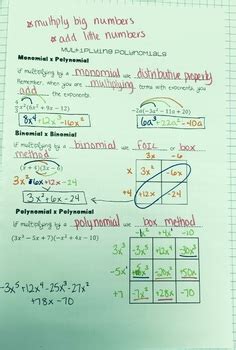 * multiply big numbers
* add little numbers
MULTIPLYING POLYNOMIALS
Monomial x Polynomial
If multiplying by a monomial we use distributive property
Remember, when you are multiplying terms with exponents, you
add the exponents.
x²(6x² + 9x - 12) -2a(-3a² - 11a + 20)
8x⁴ + 12x³ - 16x² 6a³ + 22a² - 40a
Binomial x Binomial
If multiplying by a binomial we FOIL or box
method
3x - 6
(x + 4)(3x - 6) x 3x² - 6x
3x² - 6x + 12x - 24 +4 +12x - 24
3x² + 6x - 24
Polynomial x Polynomial
If multiplying by a polynomial we box method
(3x³ - 5x + 7)(-x² + 4x - 10) -x² +4x -10
3x³ -3x⁵ 12x⁴ -30x³
-5x 5x³ -20x² 50x
+7 -7x² +28x -70
-3x⁵ + 12x⁴ - 25x³ - 27x²
+ 78x - 70